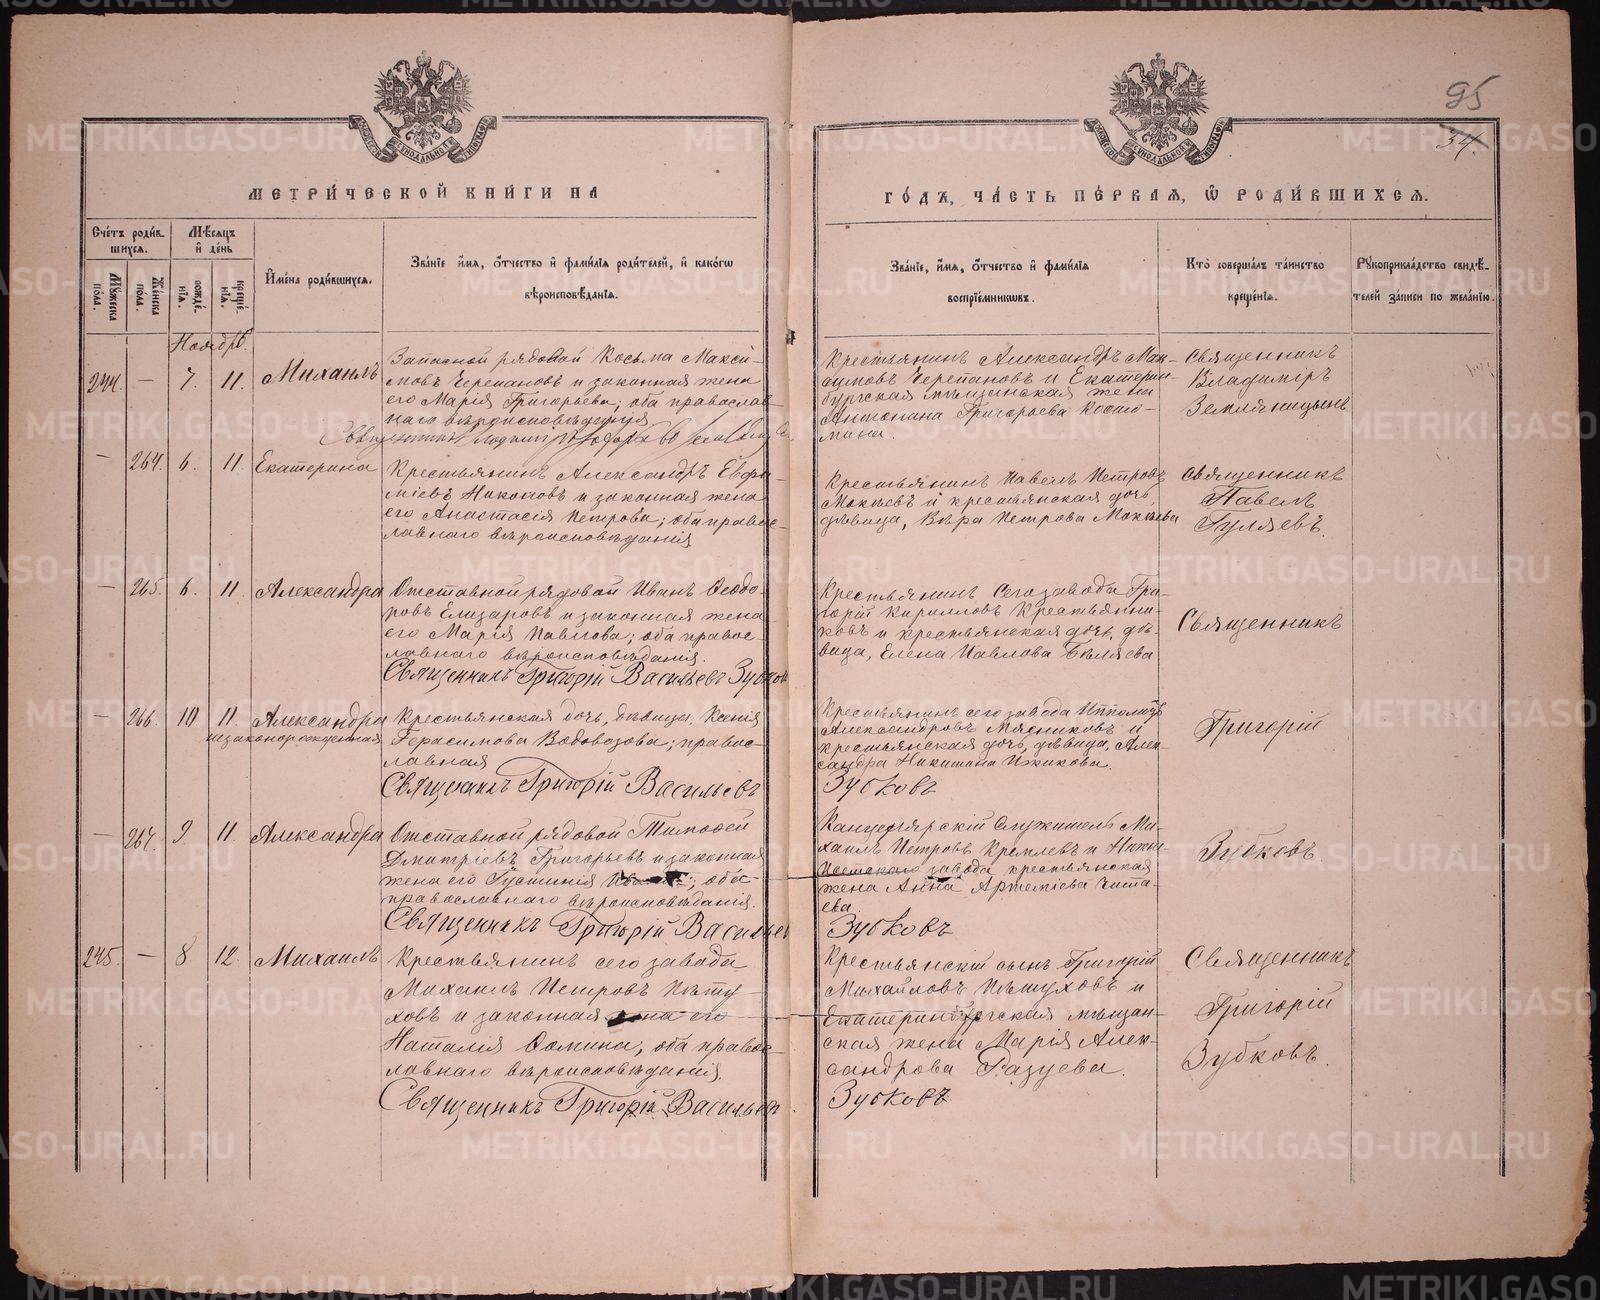 95
34.
МЕТРИ́ЧЕСКОЙ КНИ́ГИ НА
ГО́ДЪ, ЧА́СТЬ ПЕ́РВАЯ, Ѡ РОДИ́ВШИХСЯ.
Сче́тъ роди́в
шихся.
Мѣ́сяцъ
и҆ де́нь
Мꙋ́жеска по́ла.
Же́нска по́ла.
рожде́нїя.
креще́нїя.
И҆мена̀ роди́вшихся.
Зва́нїе и҆́мя, о҆́тчество и҆ фами́лїя роди́телей, и҆ како́гѡ
вѣроисповѣ́данїя.
Зва́нїе, и҆́мя, о҆́тчество и҆ фами́лїя
воспрїе́мникѡвъ.
Кто̀ соверша́лъ та́инство
креще́нїя.
Рꙋкоприкла́дство свидѣ́-
телей за́писи по жела́нїю.
Ноябрь.
244. — 7. 11. Михаилъ
Запасной рядовой Косьма Макси-
мовъ Черепановъ и законная жена
его Марія Григорьева; оба православ-
наго вѣроисповѣданія
Крестьянинъ Александръ Мак-
симовъ Черепановъ и Екатерин-
бургская мѣщанская жена
Антонина Григорьева Косто-
мина.
Священникъ
Владиміръ
Земляницынъ
— 264. 6. 11. Екатерина
Крестьянинъ Александръ Евфи-
міевъ Никоновъ и законная жена
его Анастасія Петрова; оба правос-
лавнаго вѣроисповѣданія
Крестьянинъ Павелъ Петровъ
Мокѣевъ и крестьянская дочь,
дѣвица, Вѣра Петрова Мокѣева
Священникъ
Павелъ
Гуляевъ.
— 265. 6. 11. Александра
Отставной рядовой Иванъ Ѳеодо-
ровъ Елизаровъ и законная жена
его Марія Павлова; оба правос-
лавнаго вѣроисповѣданія.
Священникъ Григорій Васильевъ Зубков
Крестьянинъ сего завода Гри-
горій Кирилловъ Крестьянни-
ковъ и крестьянская дочь, дѣ-
вица, Елена Павлова Бѣляева
Священникъ
— 266. 10 11. Александра
незаконнорожденная
Крестьянская дочь, дѣвица, Ксенія
Герасимова Водовозова; правос-
лавная
Священникъ Григорій Васильевъ
Крестьянинъ сего завода Ипполитъ
Александровъ Мясниковъ и
крестьянская дочь, дѣвица, Алек-
сандра Никитина Пжикова.
Зубковъ
Григорій
— 267. 9 11 Александра
Отставной рядовой Тимоѳей
Дмитріевъ Григорьевъ и законная
жена его Іустинія; оба
православнаго вѣроисповѣданія.
Священникъ Григорій Васильев
Канцелярскій Служитель Ми-
хаилъ Петровъ Кремлевъ и Нижне
Исетскаго завода крестьянская
жена Анна Артеміева Чиста-
ева.
Зубковъ
Зубковъ.
245. — 8 12. Михаилъ
Крестьянинъ сего завода
Михаилъ Петровъ Пѣту-
ховъ и законная жена его
Наталія Ѳомина; оба правос-
лавнаго вѣроисповѣданія.
Священникъ Григорій Васильевъ
Крестьянскій сынъ Григорій
Михайловъ Пѣтуховъ и
Екатеринбургская мѣщан-
ская жена Марія Алек-
сандрова Разуева.
Зубковъ
Священникъ
Григорій
Зубковъ.
METRIKI.GASO-URAL.RU